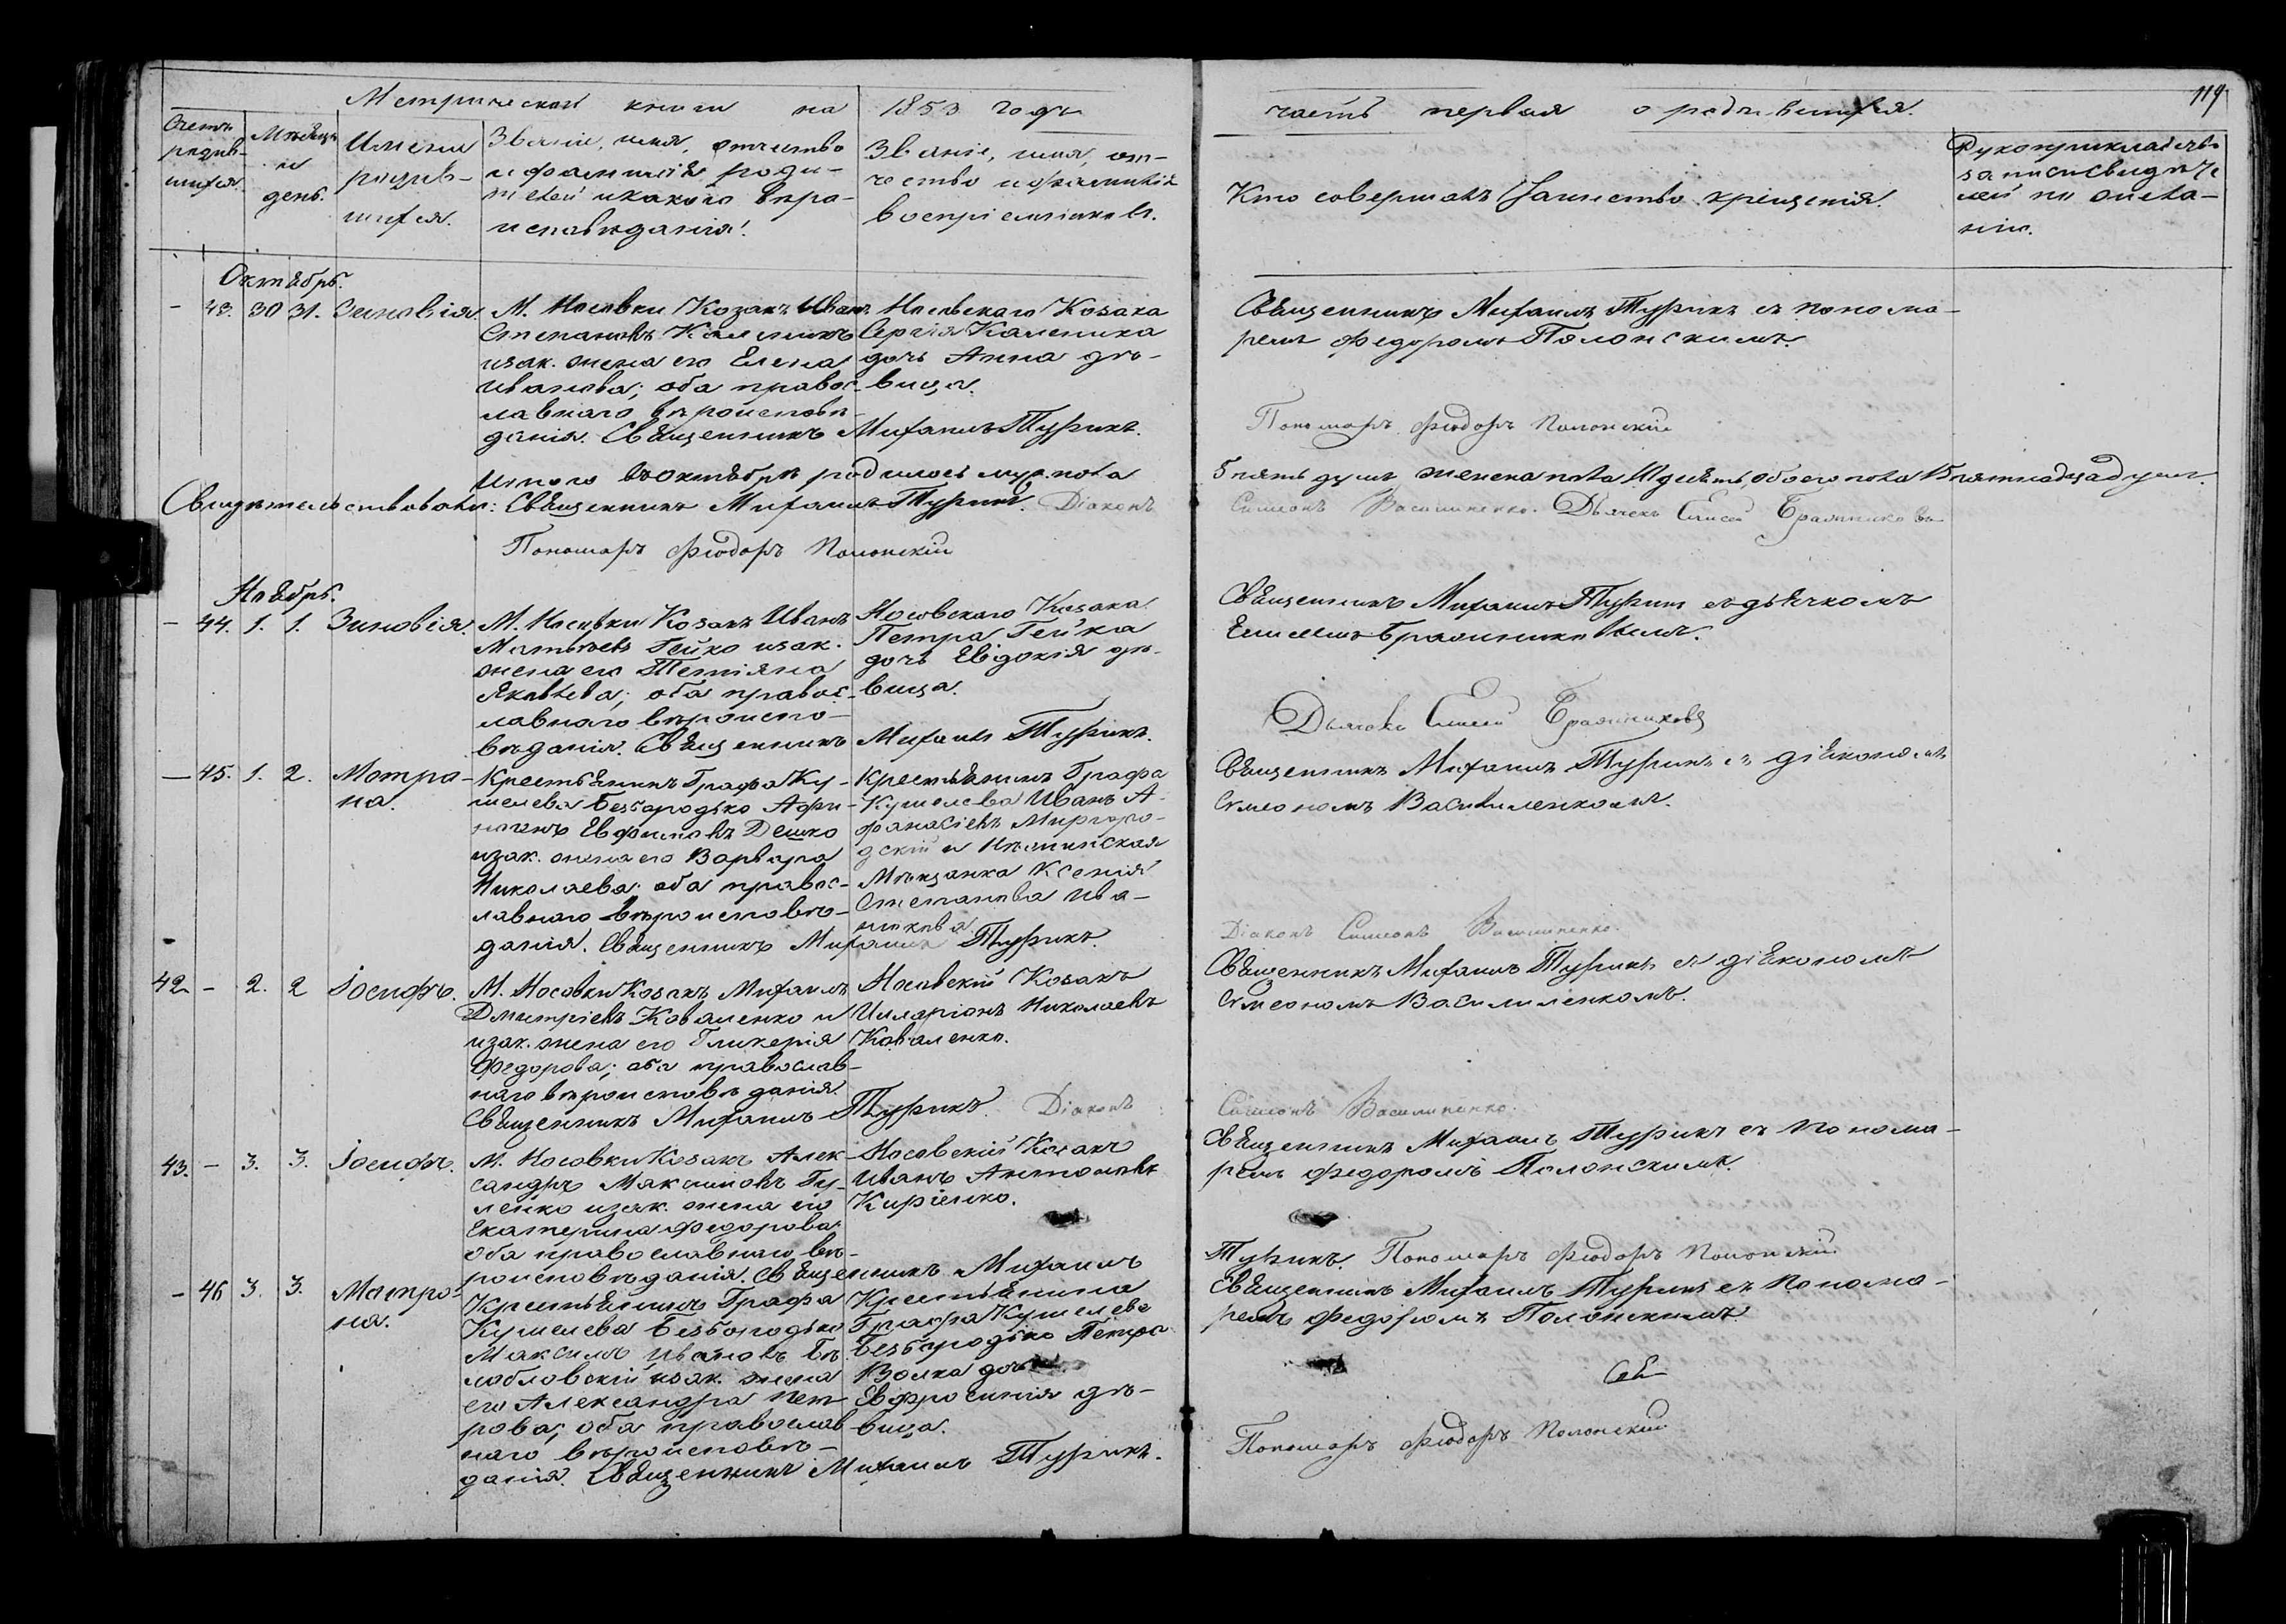 Метрической книги на 1853 годъ
часть первая о родившихся.
119
Счетъ родив-
шихся.
Мѣсяцъ
и
день.
Имена
родив-
шихся.
Званіе, имя, отчество
и фамилія роди-
телей и какого вѣро-
исповѣданія.
Званіе, имя, от-
чество и фамилія
воспріемниковъ.
Кто совершалъ таинство крещенія.
Рукоприкладство
записи свидѣте
лей по жела-
нію.
Октябрь.
- 43. 30 31. Зиновія.
М. Носовки Козакъ Иванъ
Степановъ Каленикъ
изак. жена его Елена
Иванова; оба правос-
лавнаго вѣроисповѣ-
данія. Священникъ Михаилъ Турикъ.
Носовскаго Козака
Сергія Каленика
дочь Анна дѣ-
вица.
Священникъ Михаилъ Турикъ съ понома-
ремъ Федоромъ Полонскимъ.
Пономарь Феодоръ Полонскій
Итого въ октябрѣ родилось муж. пола
5 пять душъ женска пола 10 десять, обоего пола 15 пятнадцать душъ.
Свидѣтельствовали: Священникъ Михаилъ Турикъ. Діаконъ
Симеонъ Василиненко. Дьячекъ Елисей
Пономарь Феодоръ Полонскій
Ноябрь.
- 44. 1. 1. Зиновія.
М. Носовки Козакъ Иванъ
Матвѣевъ Гейко изак.
жена его Тетіяна
Яковлева; оба правос-
лавнаго вѣроиспо-
вѣданія. Священникъ Михаилъ Турикъ.
Носовскаго Козака
Петра Гейка
дочь Евдокія дѣ-
вица.
Священникъ Михаилъ Турикъ съ дьячкомъ
Дьячекъ Елисей
- 45. 1. 2. Мотро-
на.
Крестьянинъ Графа Ку-
шелева Безбородько
Евфимовъ Дешко
изак. жена его Варвара
Николаева; оба правос-
лавнаго вѣроисповѣ-
данія. Священникъ Михаилъ Турикъ.
Крестьянинъ Графа
Кушелева Иванъ А-
фанасіевъ Миргоро-
дскій и Нѣжинская
Мѣщанка Ксенія
Степанова Ива-
нокова
Священникъ Михаилъ Турикъ съ діякономъ
Симеономъ Василиненкомъ.
Діаконъ Симеонъ Василиненко.
42 - 2. 2 Іосифъ.
М. Носовки Козакъ Михаилъ
Дмитріевъ Коваленко и
изак. жена его Гликерія
Федорова; оба православ-
наго вѣроисповѣданія
Священникъ Михаилъ Турикъ. Діаконъ
Носовскій Козакъ
Илларіонъ Николаевъ
Коваленко.
Священникъ Михаилъ Турикъ съ діякономъ
Симеономъ Василиненкомъ.
Симеонъ Василиненко.
43. - 3. 3. Іосифъ.
М. Носовки Козакъ Алек-
сандръ Максимовъ Гу-
ленко изак. жена его
Екатерина Федорова;
оба православнаго вѣ-
роисповѣданія. Священникъ Михаилъ
Носовскій Козакъ
Иванъ Антоновъ
Киріенко.
Священникъ Михаилъ Турикъ съ понома-
ремъ Федоромъ Полонскимъ.
Турикъ. Пономарь Феодоръ Полонскій
- 46 3. 3. Мотро-
на.
Крестьянинъ Графа
Кушелева Безбородько
Максимъ Ивановъ Бѣ-
изак. жена
его Александра Пет-
рова; оба православ
наго вѣроисповѣ-
данія. Священникъ Михаилъ Турикъ.
Крестьянина
Графа Кушелева
Безбородько Петра
Волка дочь
Евфросинія дѣ-
вица.
Священникъ Михаилъ Турикъ съ понома-
ремъ Федоромъ Полонскимъ
Свя
Пономарь Феодоръ Полонскій